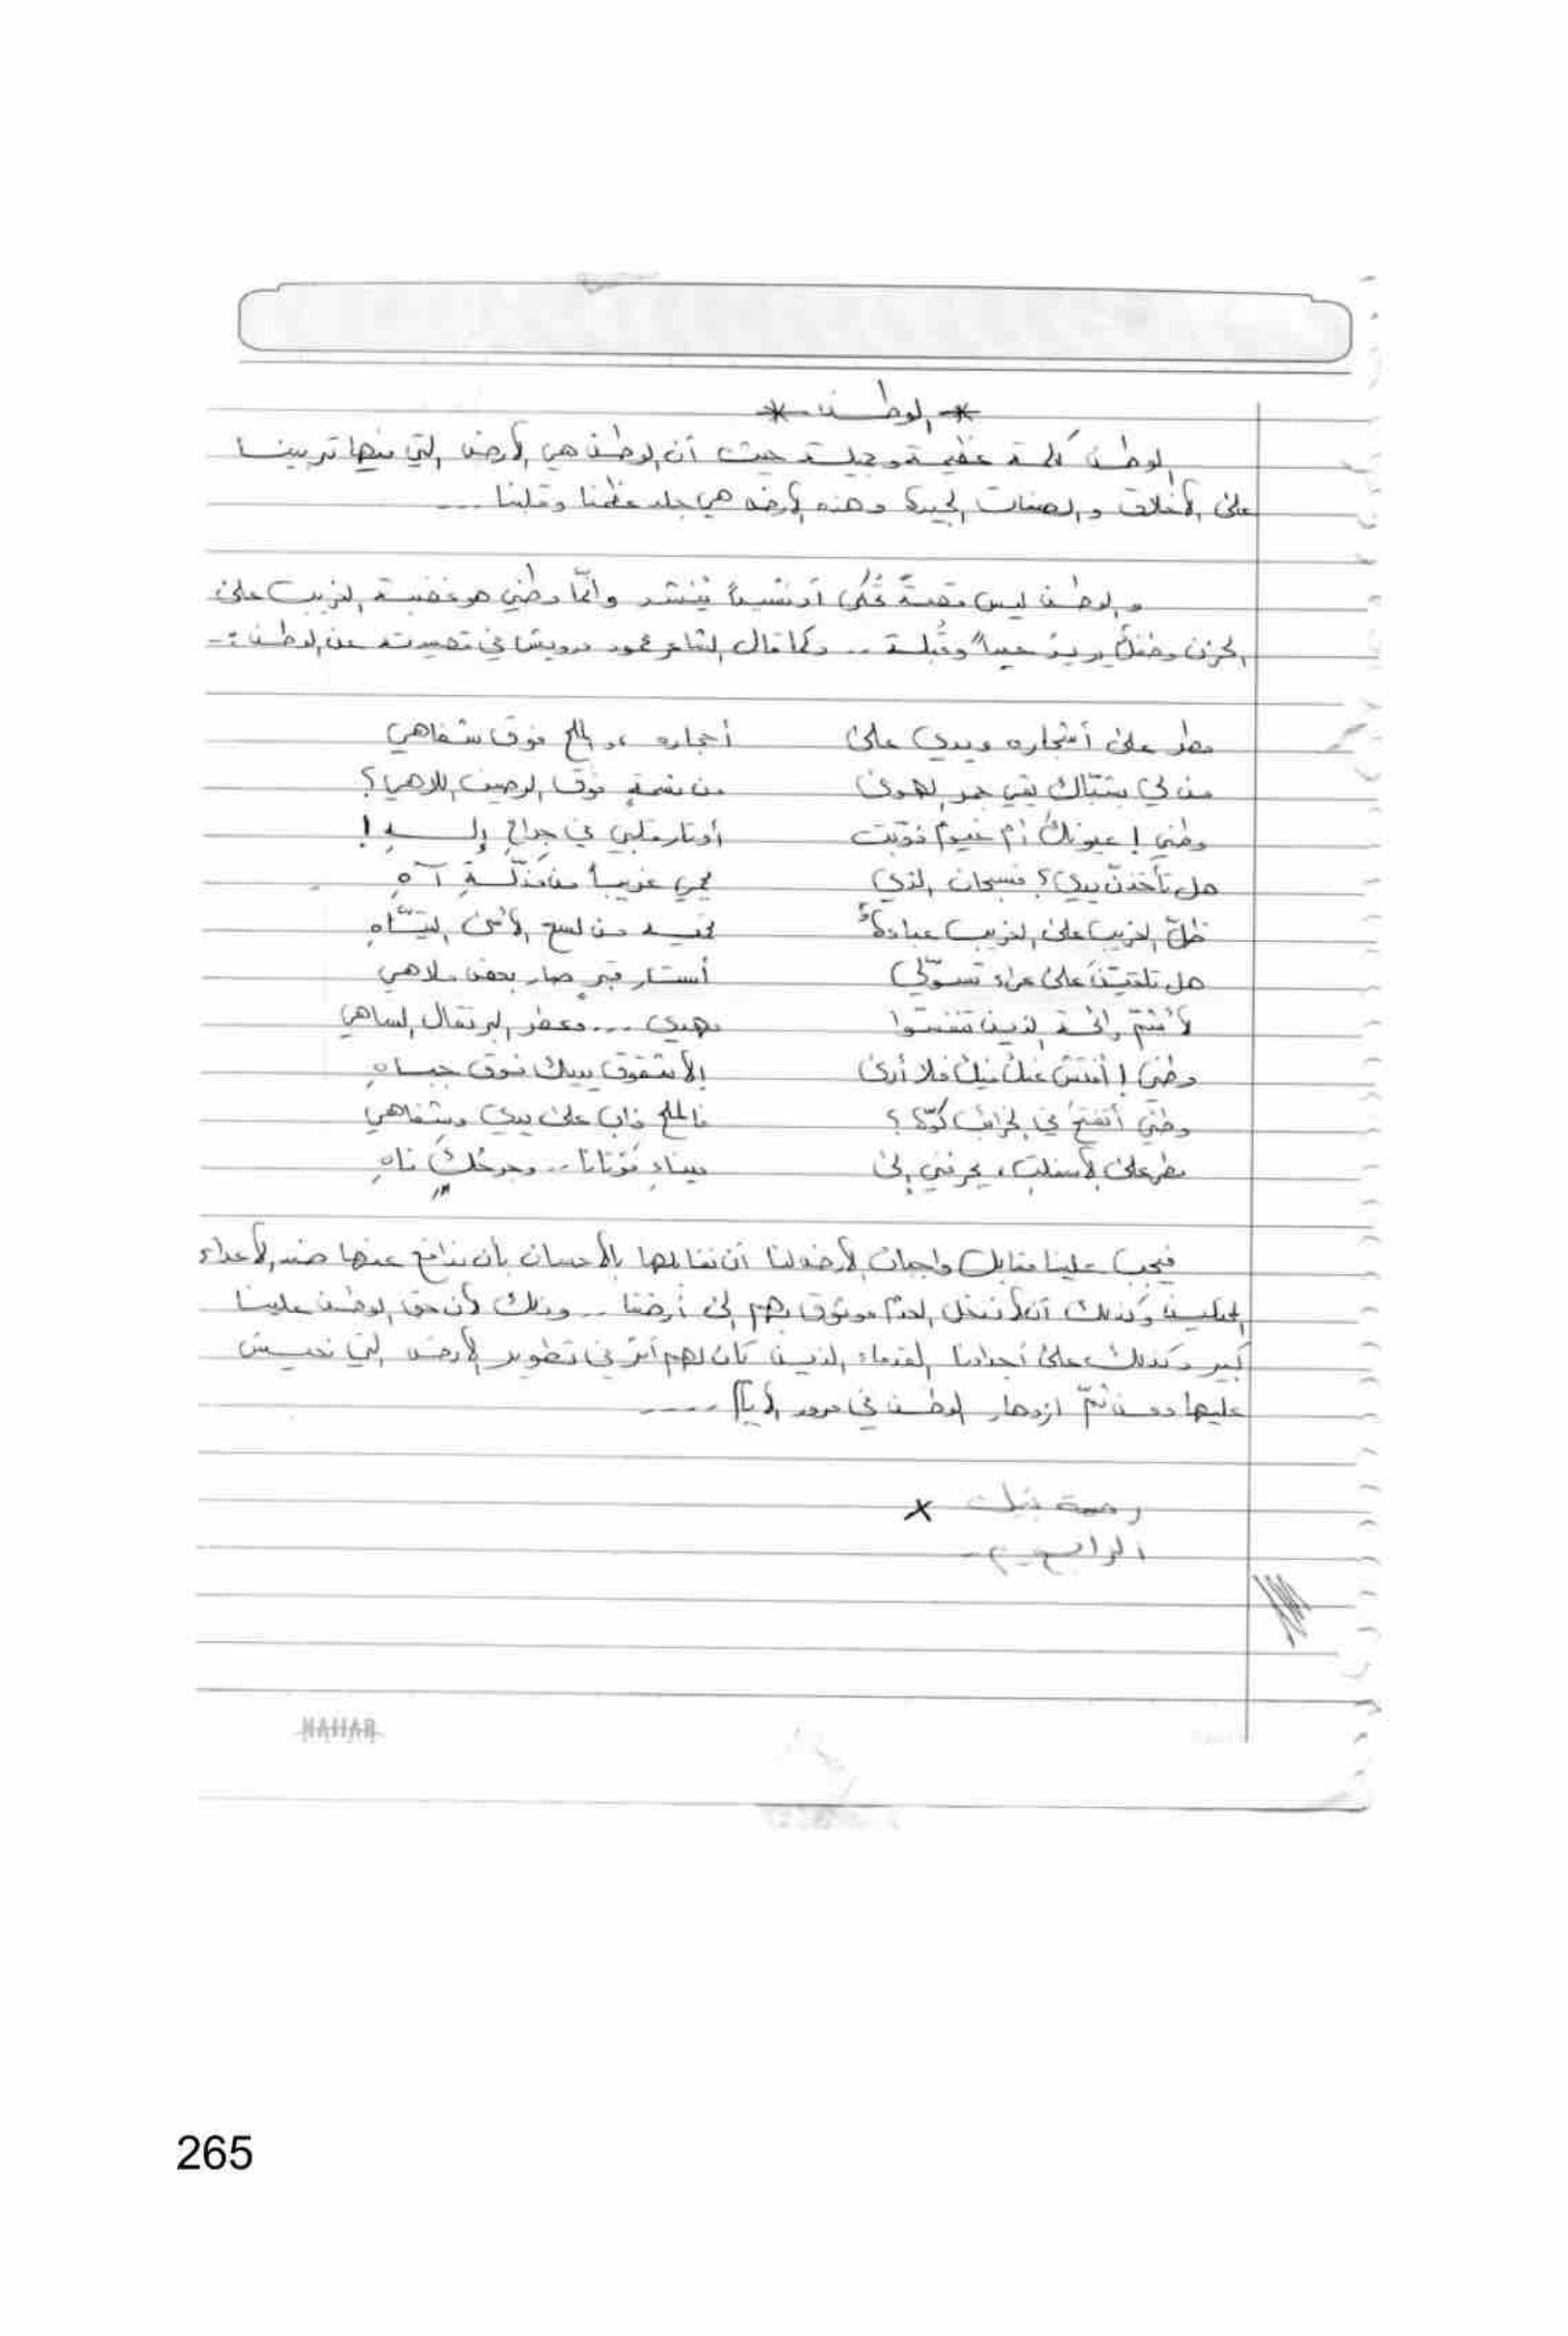 * الوطن *
الوطن كلمة عظيمة وجميلة حيث أن الوطن هي الأرض التي فيها تربينا
على الأخلاق والصفات الجيدة وهذه الأرض هي جلد عظمنا وقلبنا ...
والوطن ليس قصةً تُحكى أو نشيداً يُنشد وانّما وطني هو غضبة الغريب على
الحزن وطفلٌ يريدُ عيداً وقُبلة .. وكما قال الشاعر محمود درويش في قصيدته عن الوطن :-
مطر على أشجاره ويدي على أحجاره ، والملح فوق شفاهي
من لي بشبّاك يقي جمر الهوى من نسمةٍ فوق الرصيف اللاهي؟
وطني ! عيونكَ أم غيومٌ ذوّبت أوتار قلبي في جراحِ إلــهِ !
هل تأخذنّ يدي؟ فسبحان الذي يحمي غريباً من مَذلّــةِ آهِ
ظلّ الغريب على الغريب عباءةٌ تحميه من لسع الأسى التيّاهِ
هل تلقينَّ على عراء تسوّلي أستار قبرٍ صار بعض ملاهي
لأشمّ رائحة الذين تنفسوا مهدي ... وعطر البرتقال الساهي
وطني ! أفتش عنك فيك فلا أرى إلا شقوق يديك فوق جباهِ
وطني أتفتحُ في الخرائب كوّة؟ فالملح ذاب على يدي وشفاهي
مطر على الأسفلت ، يجرفني إلى ميناءِ موتانا .. وجرحُكَ ناهِ
فيجب علينا مقابل واجبات الأرض لنا أن نقابلها بالأحسان بأن ندافع عنها ضد الأعداء
المحتلين وكذلك أن لا ندخل الغير موثوق بهم إلى أرضنا .. وذلك لأن حق الوطن علينا
كبير وكذلك على أجدادنا القدماء الذين كان لهم أثر في تطوير الأرض التي نعيش
عليها ومن ثمّ ازدهار الوطن في مرور الأيام ....
رحمة
الرابع
NAHAR
265